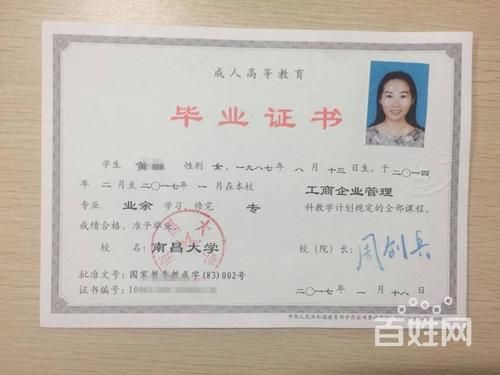 成人高等教育
毕业证书
学生 黄 性别 女，一九八七年 八 月 十三 日生，于 二〇一四
年 二 月至 二〇一七 年 一 月在本校 工商企业管理
专业 业余 学习，修完 专 科教学计划规定的全部课程，
成绩合格，准予毕业。
校 名： 南昌大学 校（院）长： 周创兵
批准文号：国家教委教成字(83)002号
证书编号：10
二〇一七年 一 月 十八 日
中华人民共和国教育部学历证书查询
百姓网